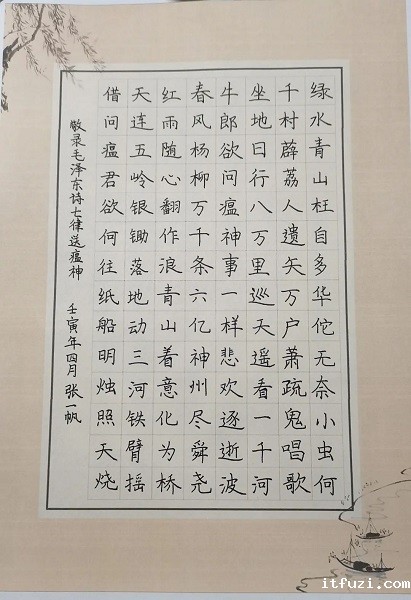 绿水青山枉自多华佗无奈小虫何
千村薜荔人遗矢万户萧疏鬼唱歌
坐地日行八万里巡天遥看一千河
牛郎欲问瘟神事一样悲欢逐逝波
春风杨柳万千条六亿神州尽舜尧
红雨随心翻作浪青山着意化为桥
天连五岭银锄落地动三河铁臂摇
借问瘟君欲何往纸船明烛照天烧
敬录毛泽东诗七律送瘟神 壬寅年四月 张一帆
itfuzi.com